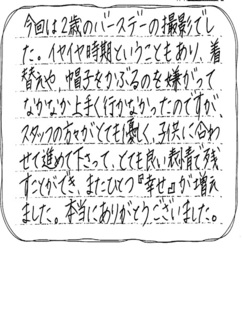 今回は2歳のバースデーの撮影でし
た。イヤイヤ時期ということもあり、着
替えや、帽子をかぶるのを嫌がって
なかなか上手く行かなかったのですが、
スタッフの方々がとても優しく、子供に合わ
せて進めて下さって、とても良い表情で残
すことができ、またひとつ『幸せ』が増え
ました。本当にありがとうございました。